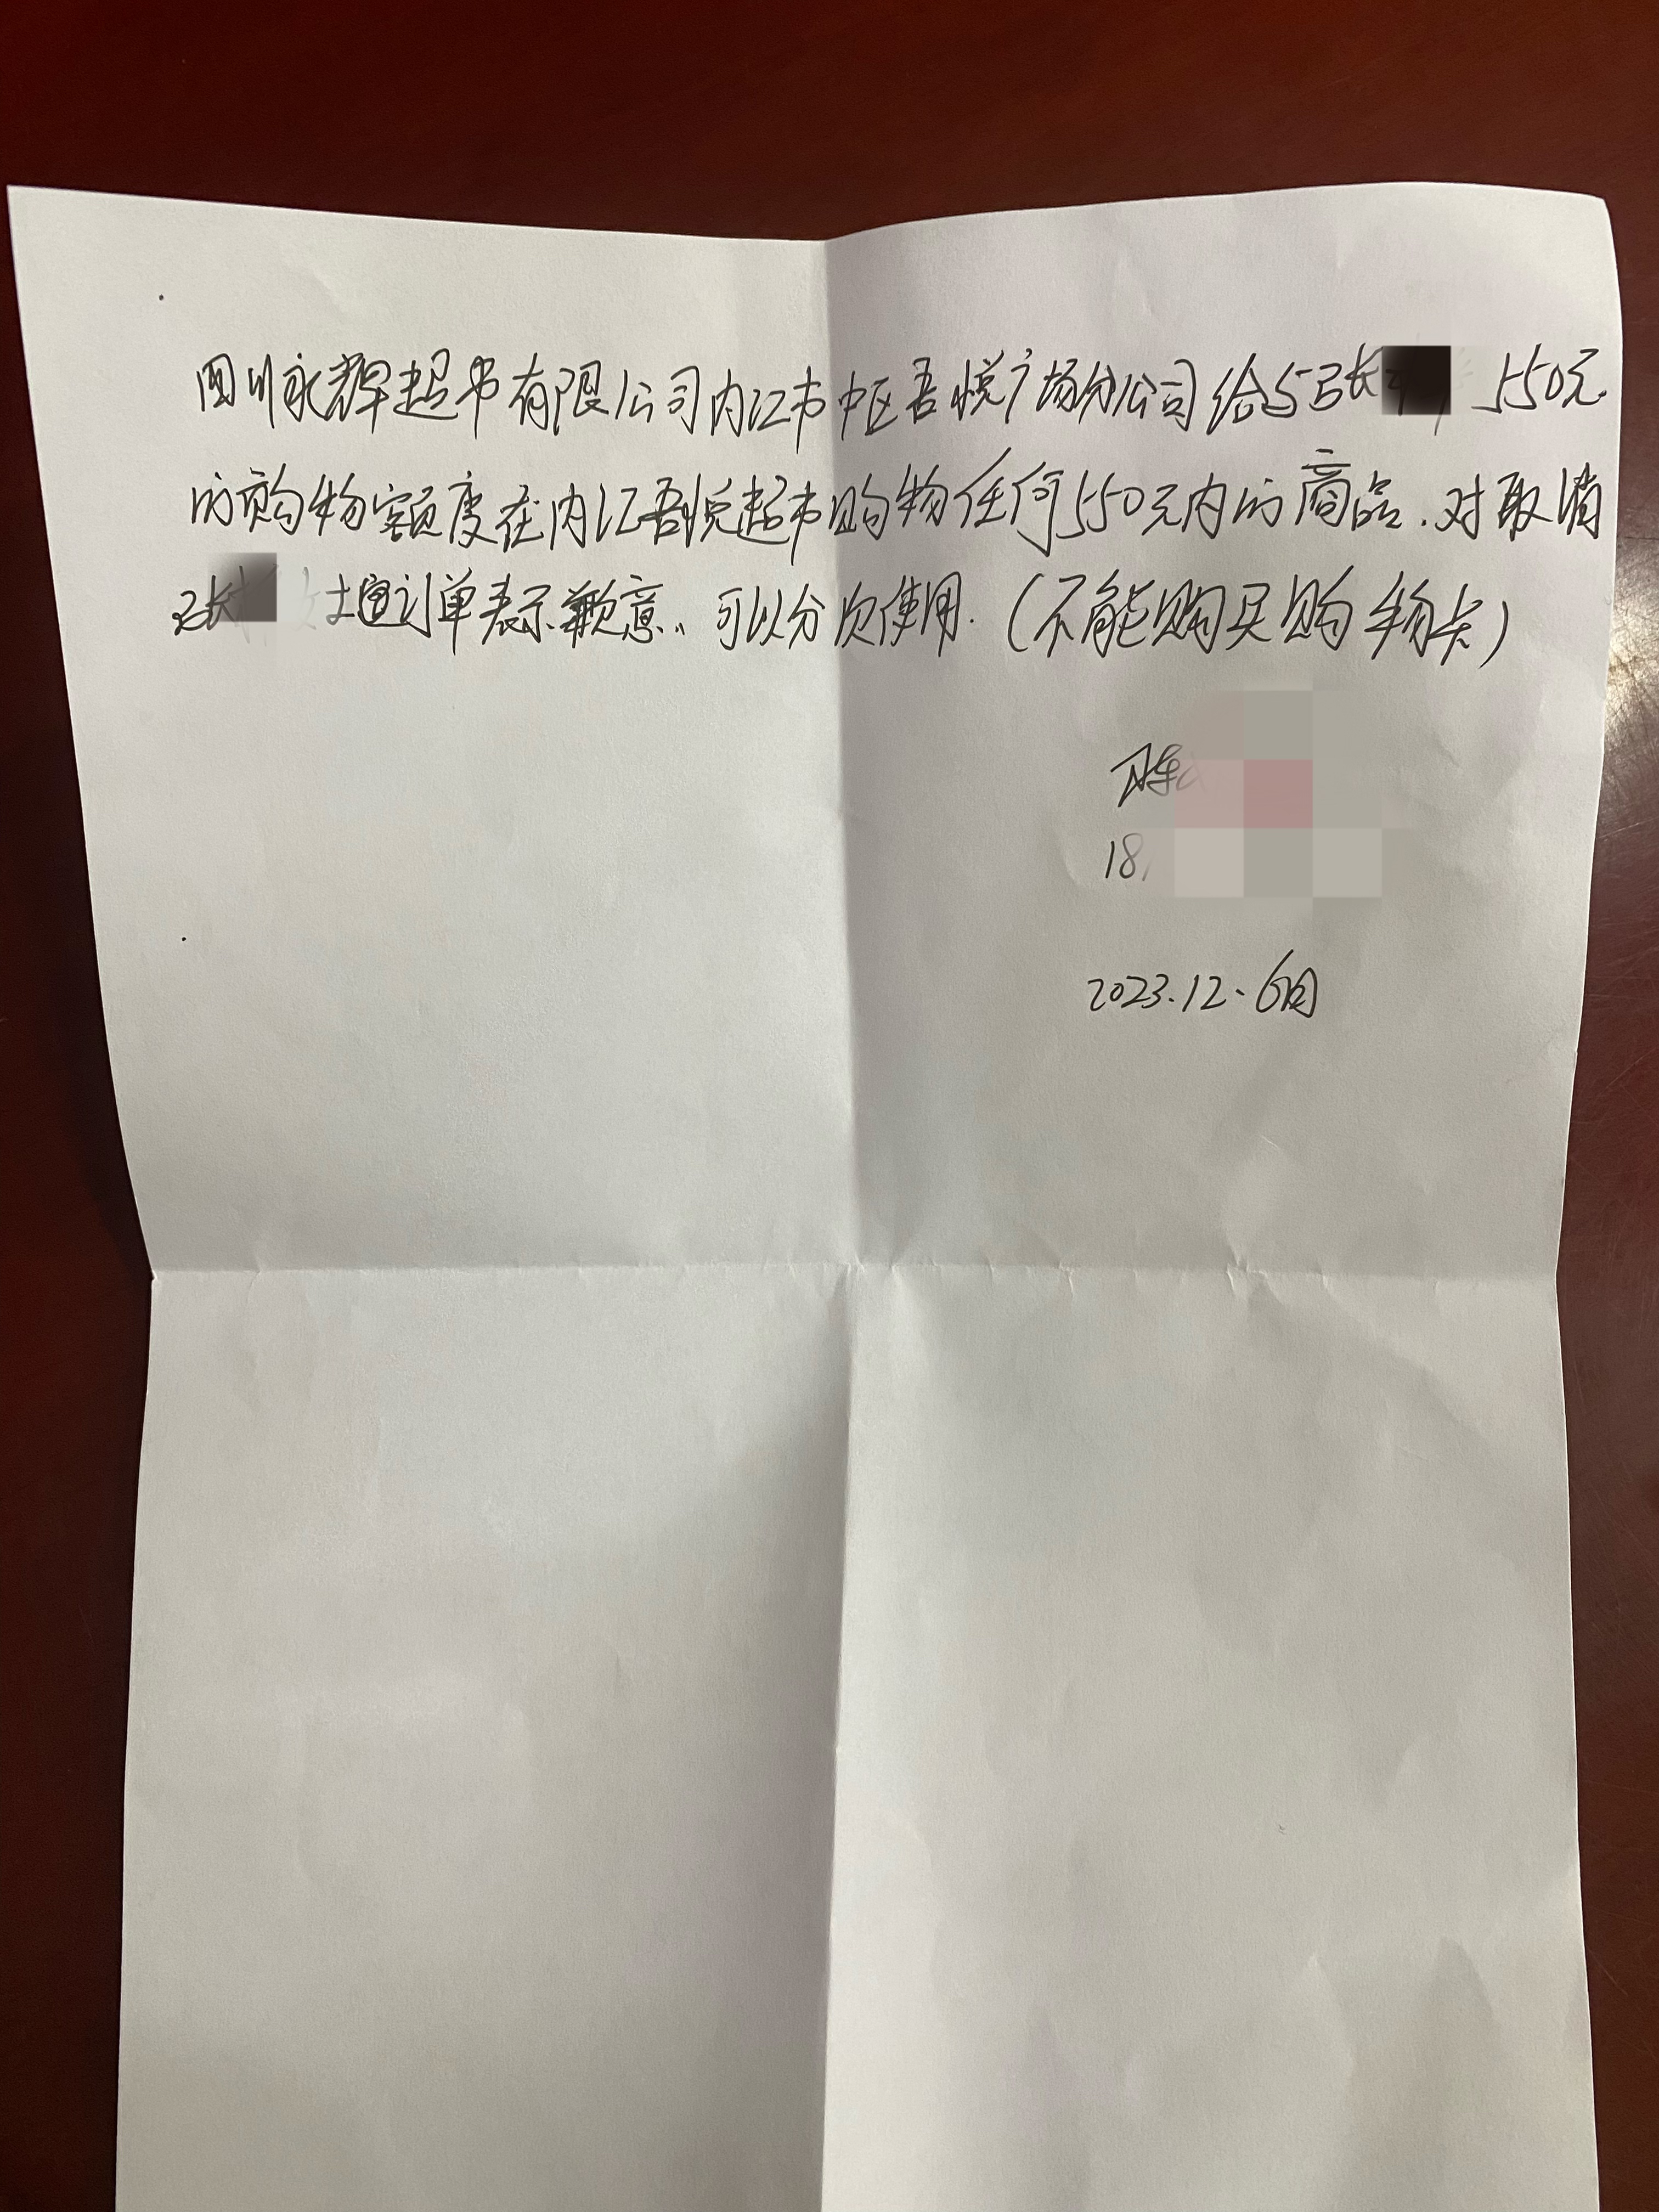 四川永辉超市有限公司内江市中区吾悦广场分公司给与张 550元
的购物额度在内江吾悦超市购物任何550元内的商品.对取消
张 女士 订单表示歉意。可以分次使用.(不能购买购物卡)
陈
18
2023.12.6日